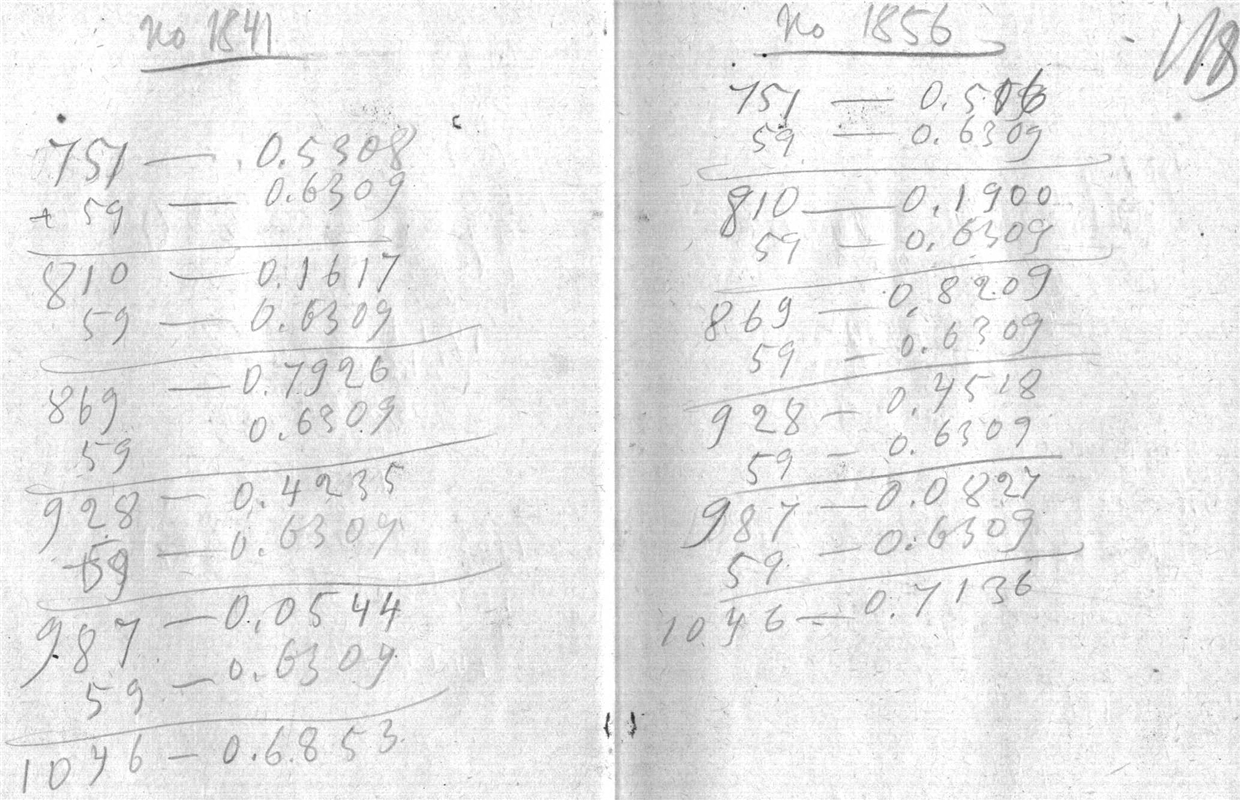 No 1841
751 — 0.5308
+ 59 — 0.6309
810 — 0.1617
59 — 0.6309
869 — 0.7926
59 0.6309
928 — 0.4235
59 — 0.6309
987 — 0.0544
59 — 0.6309
1046 — 0.6853
No 1856
751 —
59 — 0.6309
810 — 0.1900
59 — 0.6309
869 — 0.8209
59 — 0.6309
928 — 0.4518
59 — 0.6309
987 — 0.0827
59 — 0.6309
1046 — 0.7136